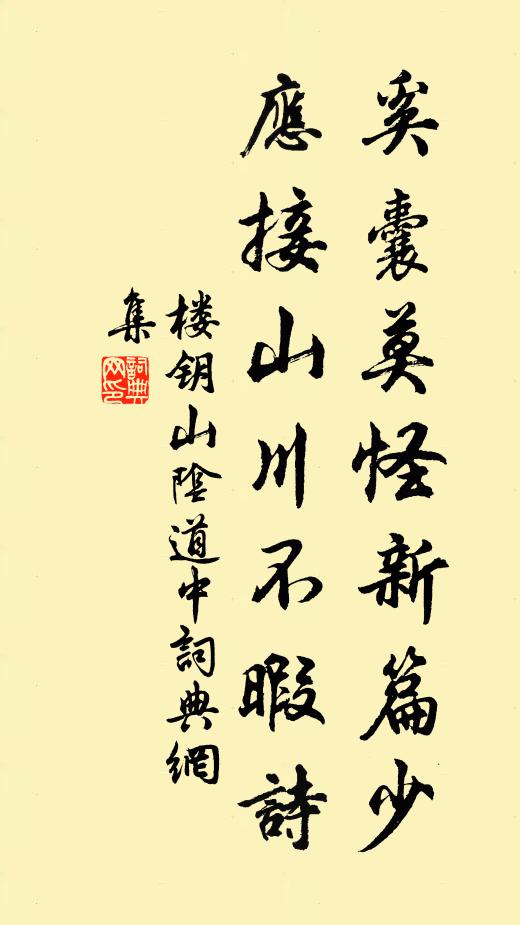 奚囊莫怪新篇少
應接山川不暇詩
楼钥山陰道中詞典網
集
詞典网印